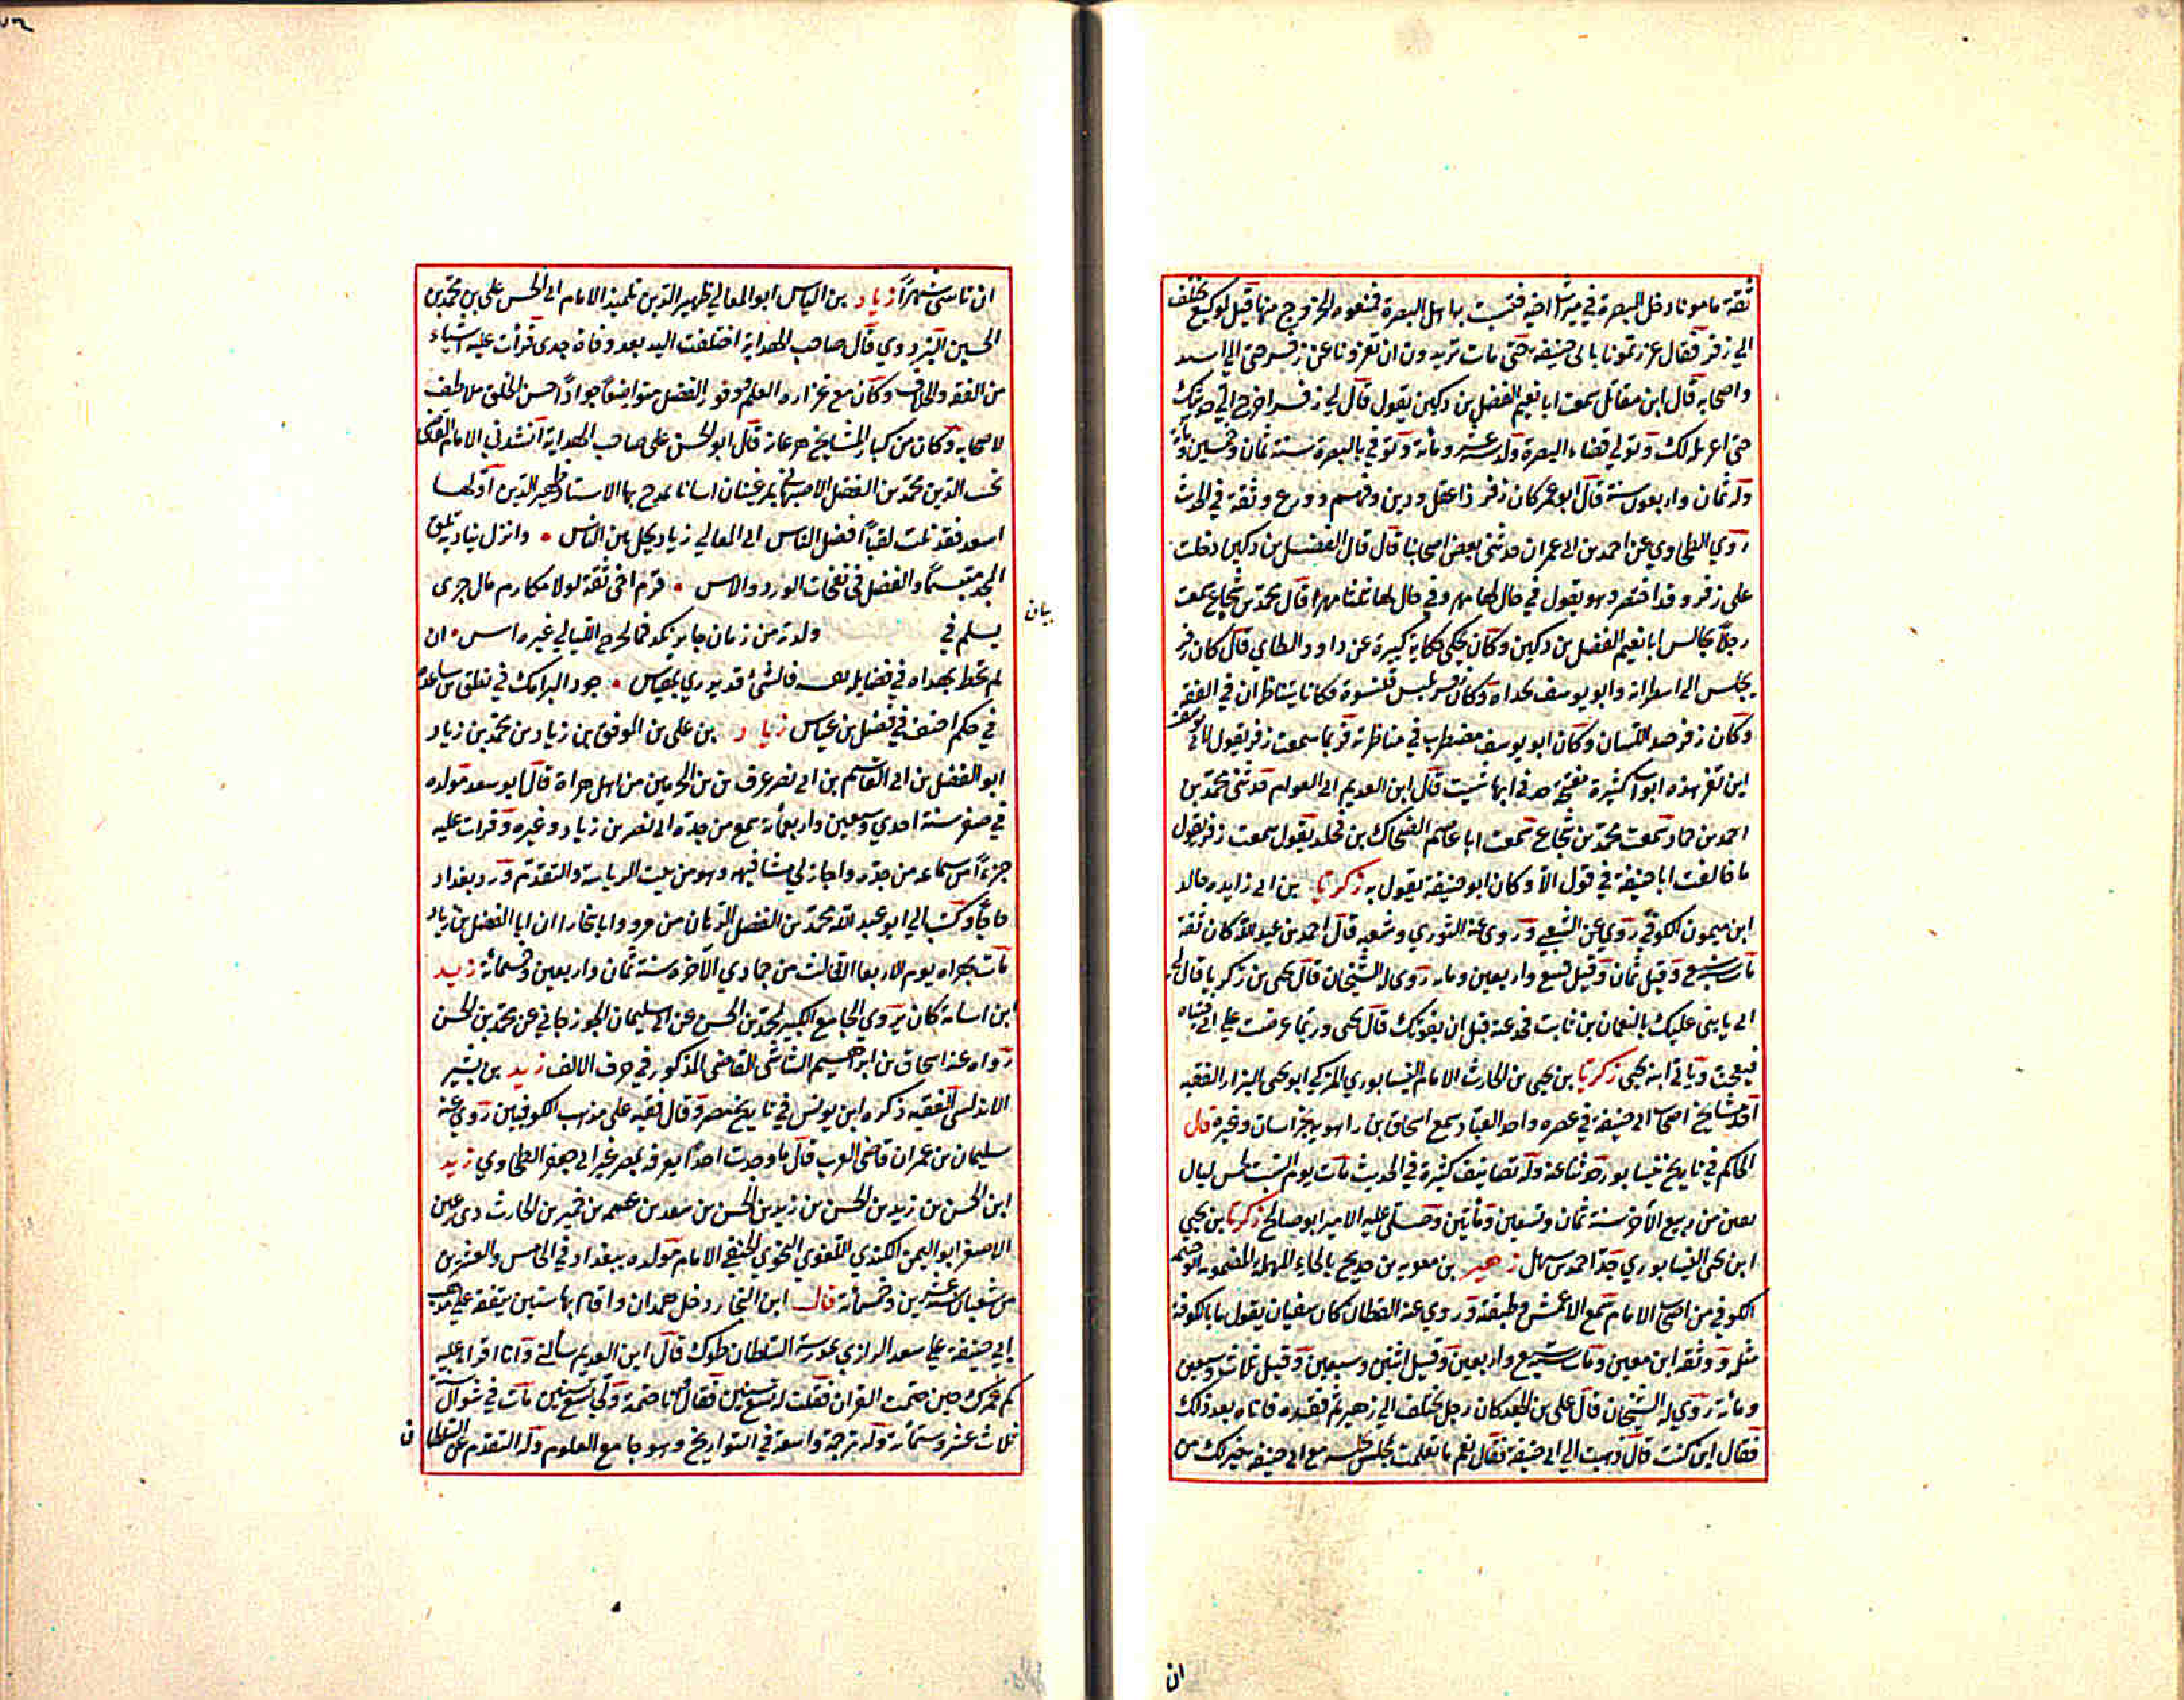 ثقة مامونا دخل البصرة في ميراث اخيه فتشبث به اهل البصرة فمنعوه الخروج منها قيل لوكيع تختلف
الي زفر فقال غررتمونا بابي حنيفة حتى مات تريدون ان تغرونا عن زفر حتى الي اسد
واصحابه قال ابن مقاتل سمعت ابا نعيم الفضل بن دكين يقول قال لي زفر اخرج الي حديثك
حتى اغربله لك وتولي قضاء البصرة ولد سنة عشر ومائة وتوفي بالبصرة سنة ثمان وخمسين ومائة
وله ثمان واربعون سنة قال ابو عمر كان زفر ذا عقل ودين وفهم وورع وثقة في الحديث
روي الطحاوي عن احمد بن ابي عمران حدثني بعض اصحابنا قال قال الفضل بن دكين دخلت
على زفر وقد احتضر وهو يقول في حال لها مهر وفي حال لها ثلثا مهر قال محمد بن شجاع سمعت
رجلا يجالس ابا نعيم الفضل بن دكين وكان يحكي حكاية كبيرة عن داود الطاي قال كان زفر
يجلس الى اسطوانة وابو يوسف بحداه وكان زفر يلبس قلنسوة فكانا يتناظران في الفقه
وكان زفر جيد اللسان وكان ابو يوسف مضطرب في مناظرته فربما سمعت زفر يقول لابي يوسف
اين تفر هذه ابواب كثيرة مفتحة خذ في ايها شيت قال ابن العديم ابي العوام حدثني محمد بن
احمد بن حماد سمعت محمد بن شجاع سمعت ابا عاصم الضحاك بن مخلد يقول سمعت زفر يقول
ما خالفت ابا حنيفة في قول الا وكان ابو حنيفة يقول به زكريا بن ابي زايده خالد
ابن ميمون الكوفي روي عن الشعبي وروى عنه الثوري وشعبه قال احمد بن عبد الله كان ثقة
مات سنة سبع وقيل ثمان وقيل تسع واربعين ومايه روى له الشيخان قال يحيى بن زكريا قال لي
ابي يا بني عليك بالنعمان بن ثابت فخذ عنه قبل ان يفوتك قال يحيى وربما عرضت على ابي فتياه
فيعجب وياتي ابنه يحيى زكريا بن يحيى بن الحارث الامام النيسابوري المزكي ابو يحيى البزار الفقيه
احد مشايخ اصحاب ابي حنيفة في عصره واحد العباد سمع اسحاق بن راهويه بخراسان وغيره قال
الحاكم في تاريخ نيسابور حدثنا عنه وله تصانيف كثيرة في الحديث مات يوم السبت لخمس ليال
بقين من ربيع الآخر سنة ثمان وتسعين ومأتين وصلى عليه الامير ابو صالح زكريا بن يحيى
ابن يحيى النيسابوري جد احمد بن سهل زهير بن معوية بن حديج بالحاء المهملة المضمومة
الكوفي من اصحاب الامام سمع الاعمش وطبقته وروى عنه القطان كان سفيان يقول ما بالكوفة
مثله ووثقه ابن معين ومات سنة سبع واربعين وقيل اثنين وسبعين وقيل ثلاث وسبعين
ومائة روى له الشيخان قال علي بن الجعد كان رجل يختلف الي زهير ثم فقده فاتاه بعد ذلك
فقال اين كنت قال ذهبت الي ابي حنيفة فقال نعم ما تعلمت لمجلس تجلسه مع ابي حنيفة خير لك من
ان
ان تاسى شهرا زياد بن الياس ابو المعالي ظهير الدين تلميذ الامام ابي الحسن علي بن محمد بن
الحسين البزدوي قال صاحب الهداية اختلفت اليه بعد وفاة جدي قرأت عليه اشياء
من الفقه والخلاف وكان مع غزارة العلم وفور الفضل متواضعا جوادا حسن الخلق ملاطف
لاصحابه وكان من كبار المشايخ قال ابو الحسن علي صاحب الهداية انشدني الامام القاضي
محمد بن الفضل الاصبهاني يمدح بها الاستاد ظهير الدين اولها
افضل الناس ابي المعالي زياد من الناس • وانزل بناديه تلق
المجد مبتسما والفضل في نفحات الورد والاس • قرم اخي ثقة لولا مكارمه مال جرى
يسلم في ولد من زمان الليالي غيره اس • ان
بيان
لم يحط في فضايله فالشئ قد بمقياس • جود البرامك في نطق بن ساعدة
في حكم احنف في فضل بن عباس زياد بن علي بن الموفق بن زياد بن محمد بن زياد
ابو الفضل بن ابي القاسم بن ابي نصر من اهل هراة قال ابو سعد مولده
في صفر سنة احدي وسبعين واربعمائة سمع من جده ابي نصر بن زياد وغيره وقرات عليه
جزءا من سماعه من جده واجاز لي مشافهة وهو من بيت الرياسة والتقدم ورد بغداد
حاجا وكتب الي ابو عبد الله محمد بن الفضل من مرو وانا ببخارا ان ابا الفضل بن زياد
مات بهراه يوم الاربعا الثالث من جمادي الآخره سنة ثمان واربعين وخمسمائة زيد
ابن اسامة كان يروي الجامع الكبير لمحمد بن الحسن عن ابي سليمان الجوزجاني عن محمد بن الحسن
رواه عنه اسحاق بن ابراهيم الشاشي القاضي المذكور في حرف الالف زيد بن بشير
الاندلسي الفقيه ذكره ابن يونس في تاريخ مصر وقال فقيه على مذهب الكوفيين روى عنه
سليمان بن عمران قاضي الغرب قال ما وجدت احدا يعرفه بمصر غير ابي جعفر الطحاوي زيد
ابن الحسن بن زيد بن الحسن بن زيد بن الحسن بن سعد بن عصمة بن حمير بن الحارث ذي رعين
الاصغر ابو اليمن الكندي اللغوي النحوي الحنفي الامام مولده ببغداد في الخامس والعشرين
من شعبان سنة عشرين وخمسمائة قال ابن النجار دخل همدان واقام بها سنين يتفقه على مذهب
ابي حنيفة على سعد الرازي بمدرسة السلطان طغرل قال ابن العديم سالته وانا اقرا عليه
كم عمرك حين ختمت القران فقلت له تسع سنين فقال انا ختمته ولي تسع سنين مات في شوال سنة
ثلاث عشر وستمائة وله ترجمة واسعة في التواريخ وهو جامع العلوم وله التقدم عند السلطان